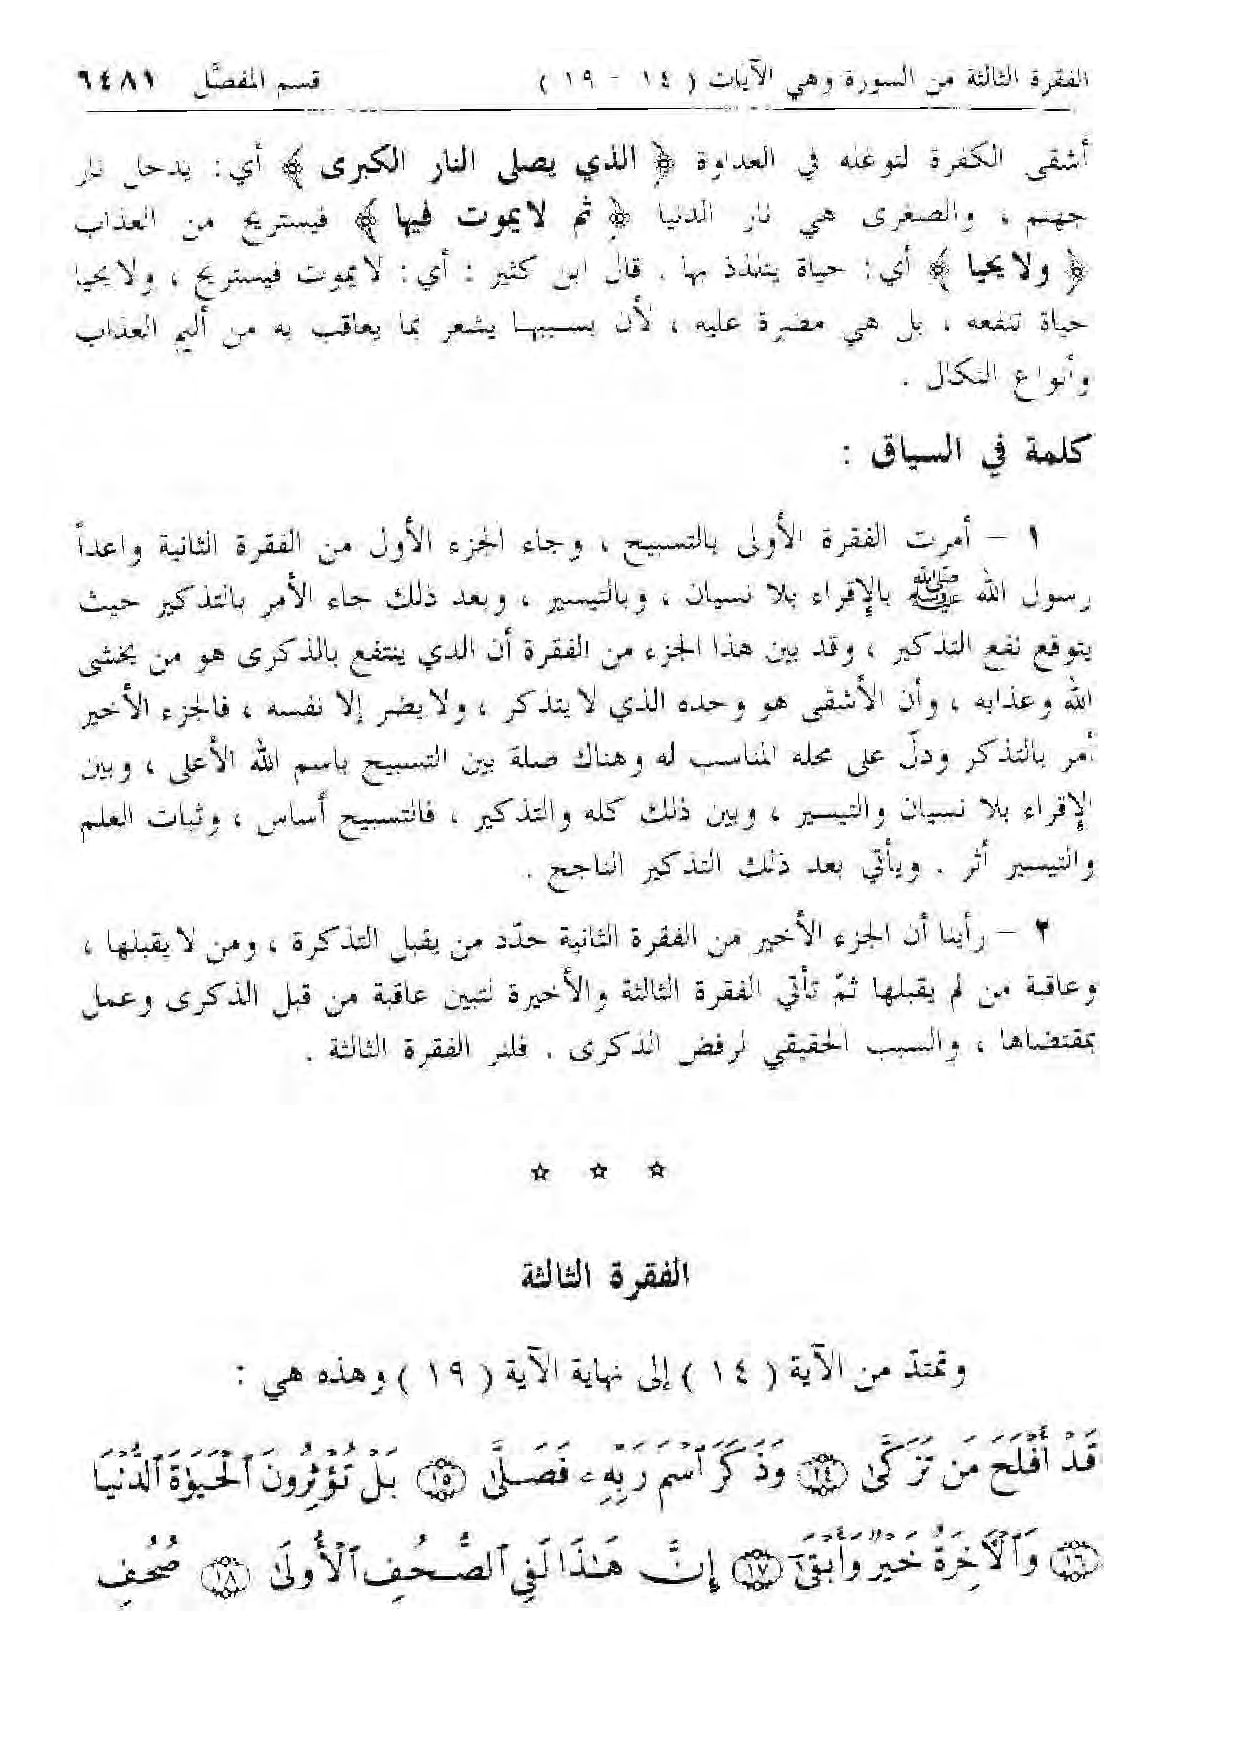 الفقرة الثالثة من السورة وهي الآيات ( ١٤ - ١٩ ) قسم المفصَّل ٦٤٨١
أشقى الكفرة لتوغله في العداوة ﴿ الذي يصلى النار الكبرى ﴾ أي : يدخل نار
جهنم ، والصغرى هي نار الدنيا ﴿ ثم لا يموت فيها ﴾ فيستريح من العذاب
﴿ ولا يحيا ﴾ أي : حياة يتلذذ بها . قال ابن كثير : أي : لا يموت فيستريح ، ولا يحيا
حياة تنفعه ، بل هي مضرة عليه ، لأن بسببها يشعر بما يعاقب به من أليم العذاب
وأنواع النكال .
كلمة في السياق :
١ – أمرت الفقرة الأولى بالتسبيح ، وجاء الجزء الأول من الفقرة الثانية واعداً
رسول الله ﷺ بالإقراء بلا نسيان ، وبالتيسير ، وبعد ذلك جاء الأمر بالتذكير حيث
يتوقع نفع التذكير ، وقد بين هذا الجزء من الفقرة أن الذي ينتفع بالذكرى هو من يخشى
الله وعذابه ، وأن الأشقى هو وحده الذي لا يتذكر ، ولا يضر إلا نفسه ، فالجزء الأخير
أمر بالتذكر ودلّ على محله المناسب له وهناك صلة بين التسبيح باسم الله الأعلى ، وبين
الإقراء بلا نسيان والتيسير ، وبين ذلك كله والتذكير ، فالتسبيح أساس ، وثبات العلم
والتيسير أثر . ويأتي بعد ذلك التذكير الناجح .
٢ – رأينا أن الجزء الأخير من الفقرة الثانية حدّد من يقبل التذكرة ، ومن لا يقبلها ،
وعاقبة من لم يقبلها ثمّ تأتي الفقرة الثالثة والأخيرة لتبين عاقبة من قبل الذكرى وعمل
بمقتضاها ، والسبب الحقيقي لرفض الذكرى . فلنر الفقرة الثالثة .
☆ ☆ ☆
الفقرة الثالثة
وتمتدّ من الآية ( ١٤ ) إلى نهاية الآية ( ١٩ ) وهذه هي :
قَدْ أَفْلَحَ مَن تَزَكَّىٰ ١٤ وَذَكَرَ ٱسْمَ رَبِّهِۦ فَصَلَّىٰ ١٥ بَلْ تُؤْثِرُونَ ٱلْحَيَوٰةَ ٱلدُّنْيَا
١٦ وَٱلْآخِرَةُ خَيْرٌ وَأَبْقَىٰٓ ١٧ إِنَّ هَٰذَا لَفِى ٱلصُّحُفِ ٱلْأُولَىٰ ١٨ صُحُفِ